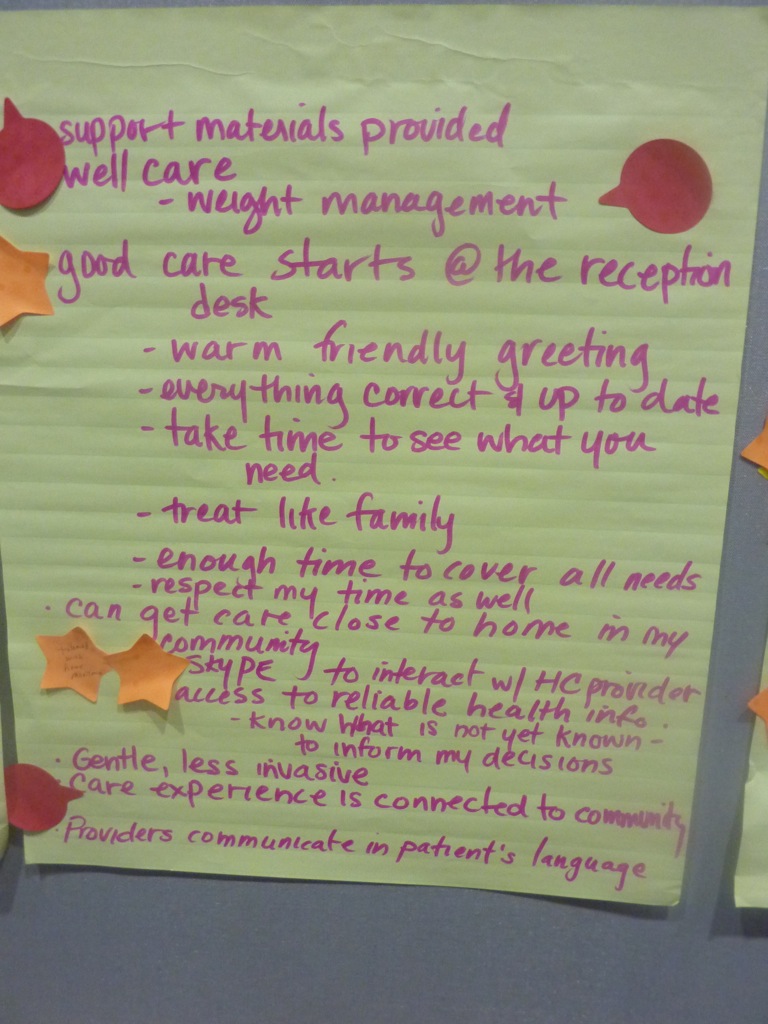 support materials provided
well care
- weight management
good care starts @ the reception
desk
- warm friendly greeting
- everything correct & up to date
- take time to see what you
need.
- treat like family
- enough time to cover all needs
- respect my time as well
· can get care close to home in my
community
SKYPE to interact w/ HC provider
access to reliable health info.
- know what is not yet known -
to inform my decisions
· Gentle, less invasive
· Care experience is connected to community
· Providers communicate in patient's language